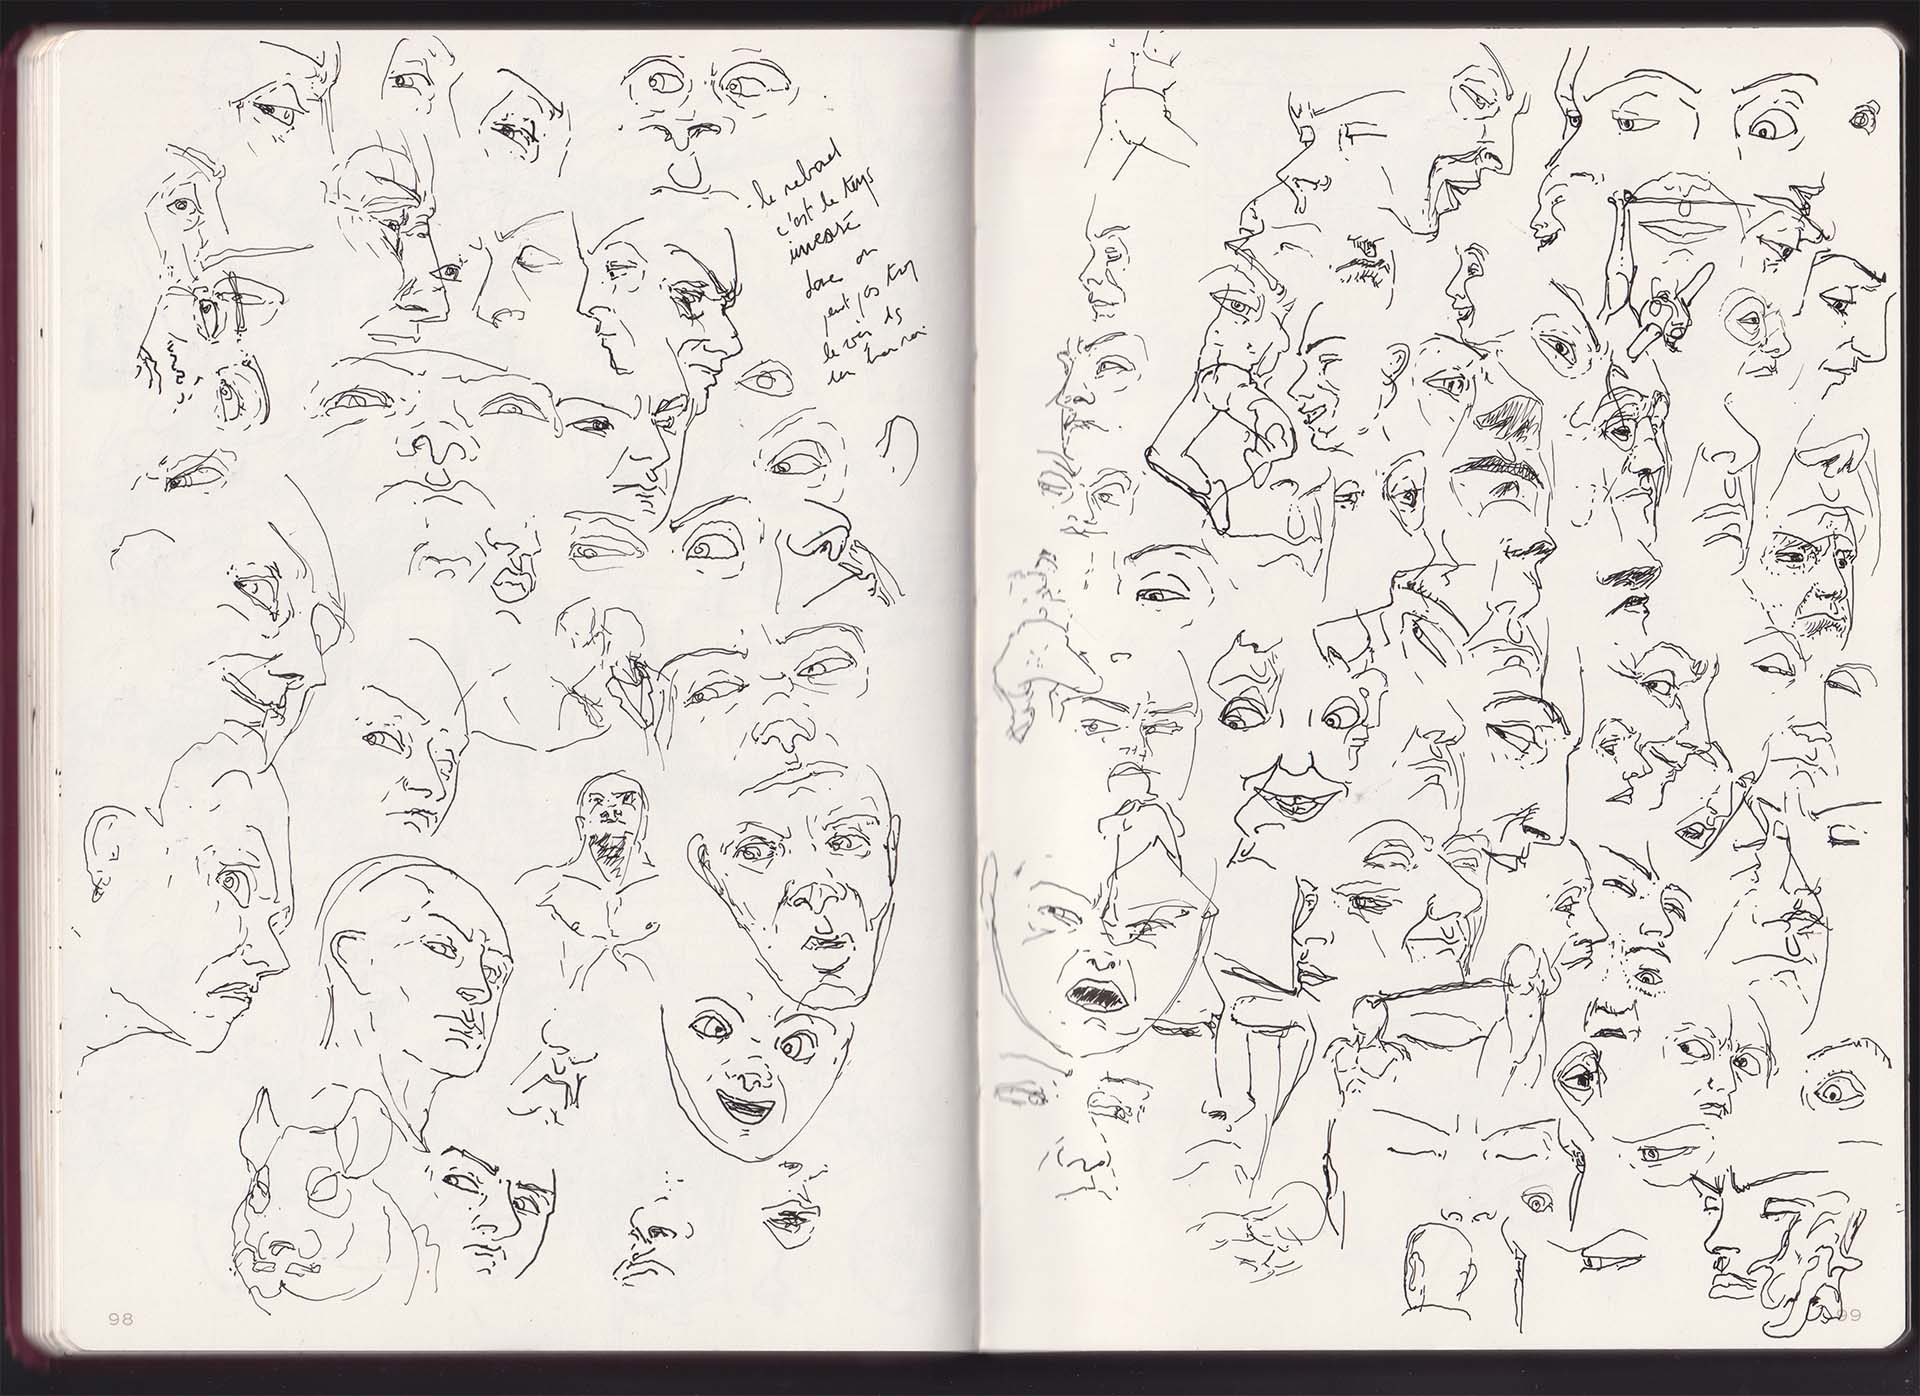 le rebord
c'est le temps
inversé
donc on
peut pas trop
le voir ds
un miroir
98
99